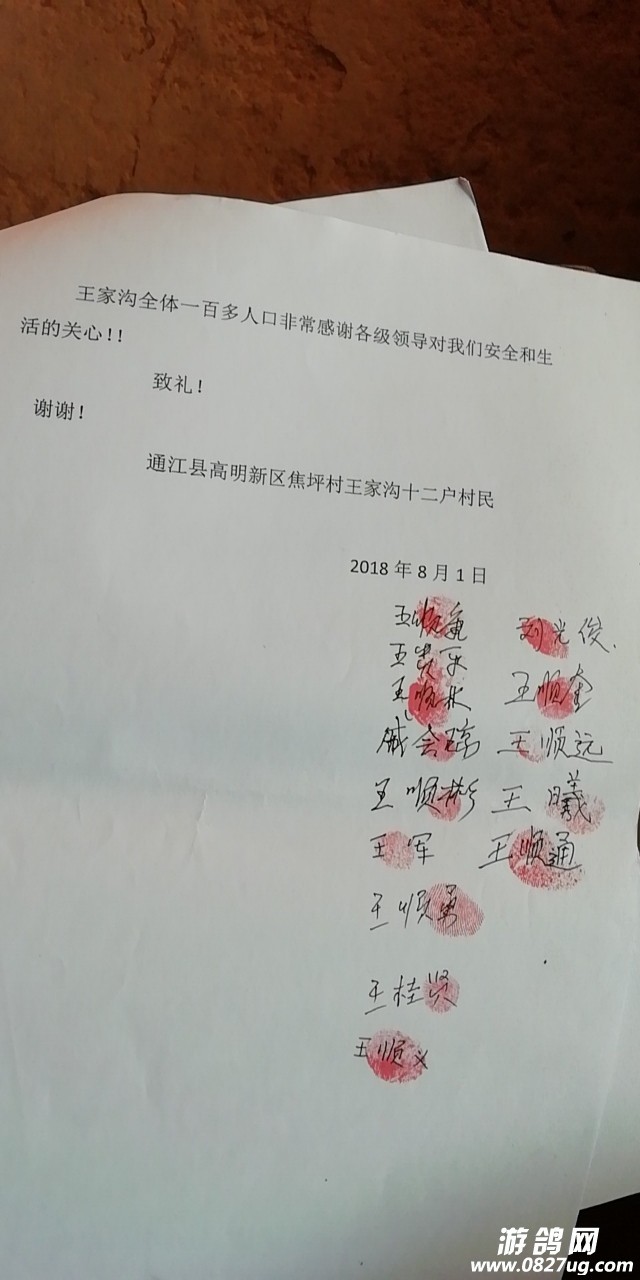 王家沟全体一百多人口非常感谢各级领导对我们安全和生
活的关心!!
致礼!
谢谢!
通江县高明新区焦坪村王家沟十二户村民
2018 年 8 月 1 日
王顺 刘光俊
王贵乐
王顺林 王顺奎
会琼 王顺远
王顺彬 王曦
王军 王顺通
王顺勇
王桂贤
王顺义
游鸽网
www.0827ug.com